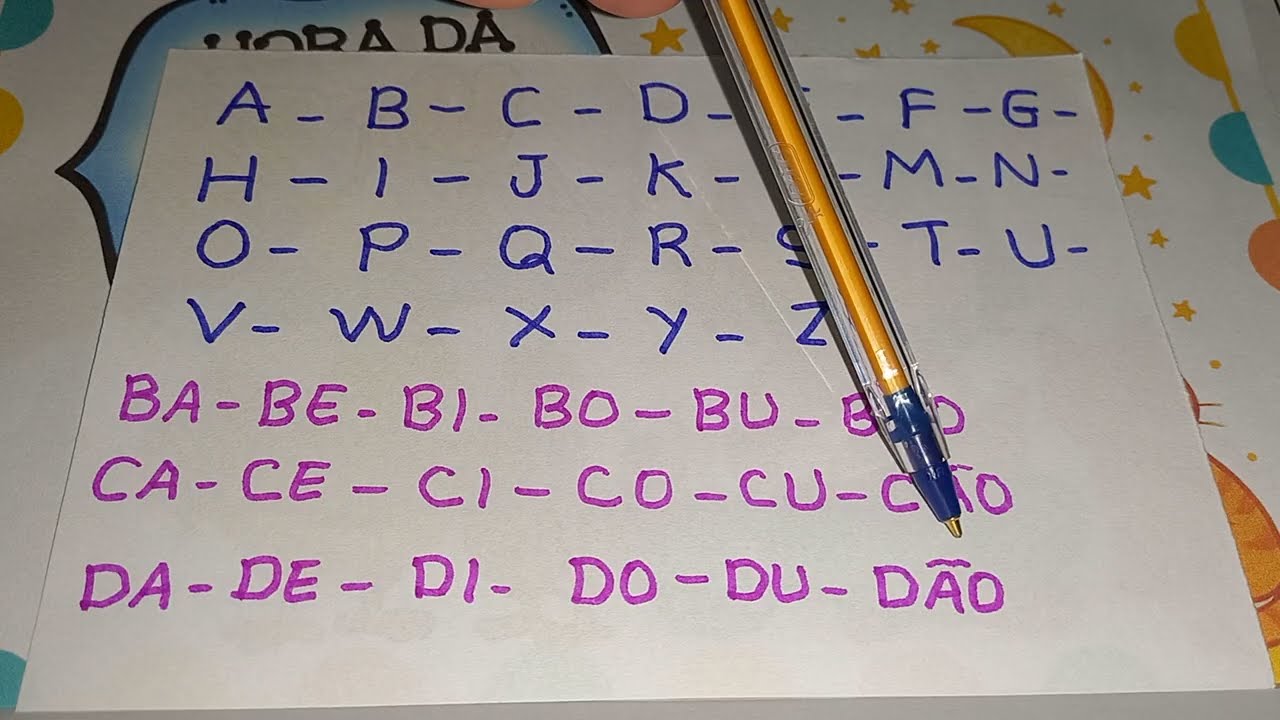 HORA DA
A - B - C - D - - F - G -
H - I - J - K - - M - N -
O - P - Q - R - S - T - U -
V - W - X - Y - Z
BA - BE - BI - BO - BU -
CA - CE - CI - CO - CU - CÃO
DA - DE - DI - DO - DU - DÃO